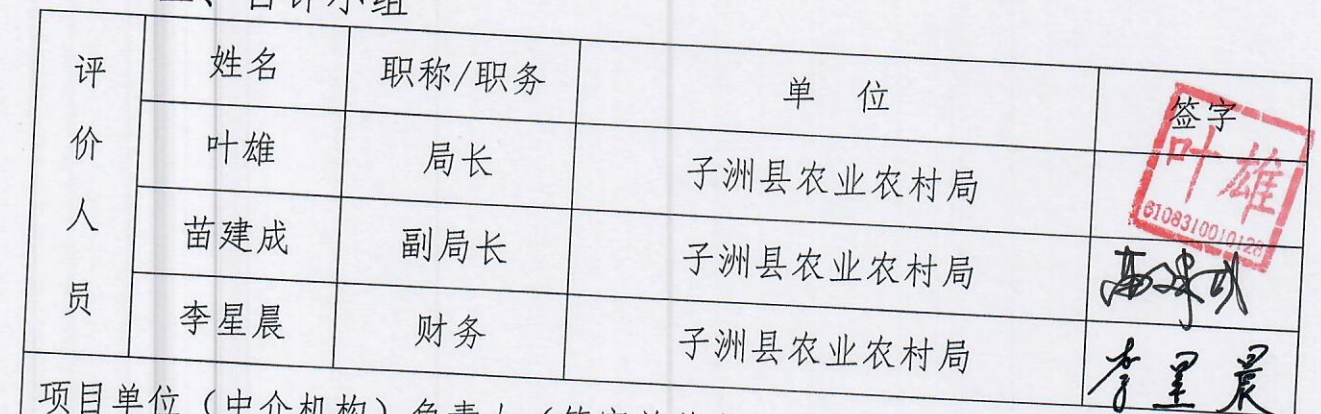 小组
评价人员
姓名 职称/职务 单 位 签字
叶雄 局长 子洲县农业农村局
叶雄
6108310010128
苗建成 副局长 子洲县农业农村局 苗建成
李星晨 财务 子洲县农业农村局 李星晨
项目单位（中介机构）负责人（签字并